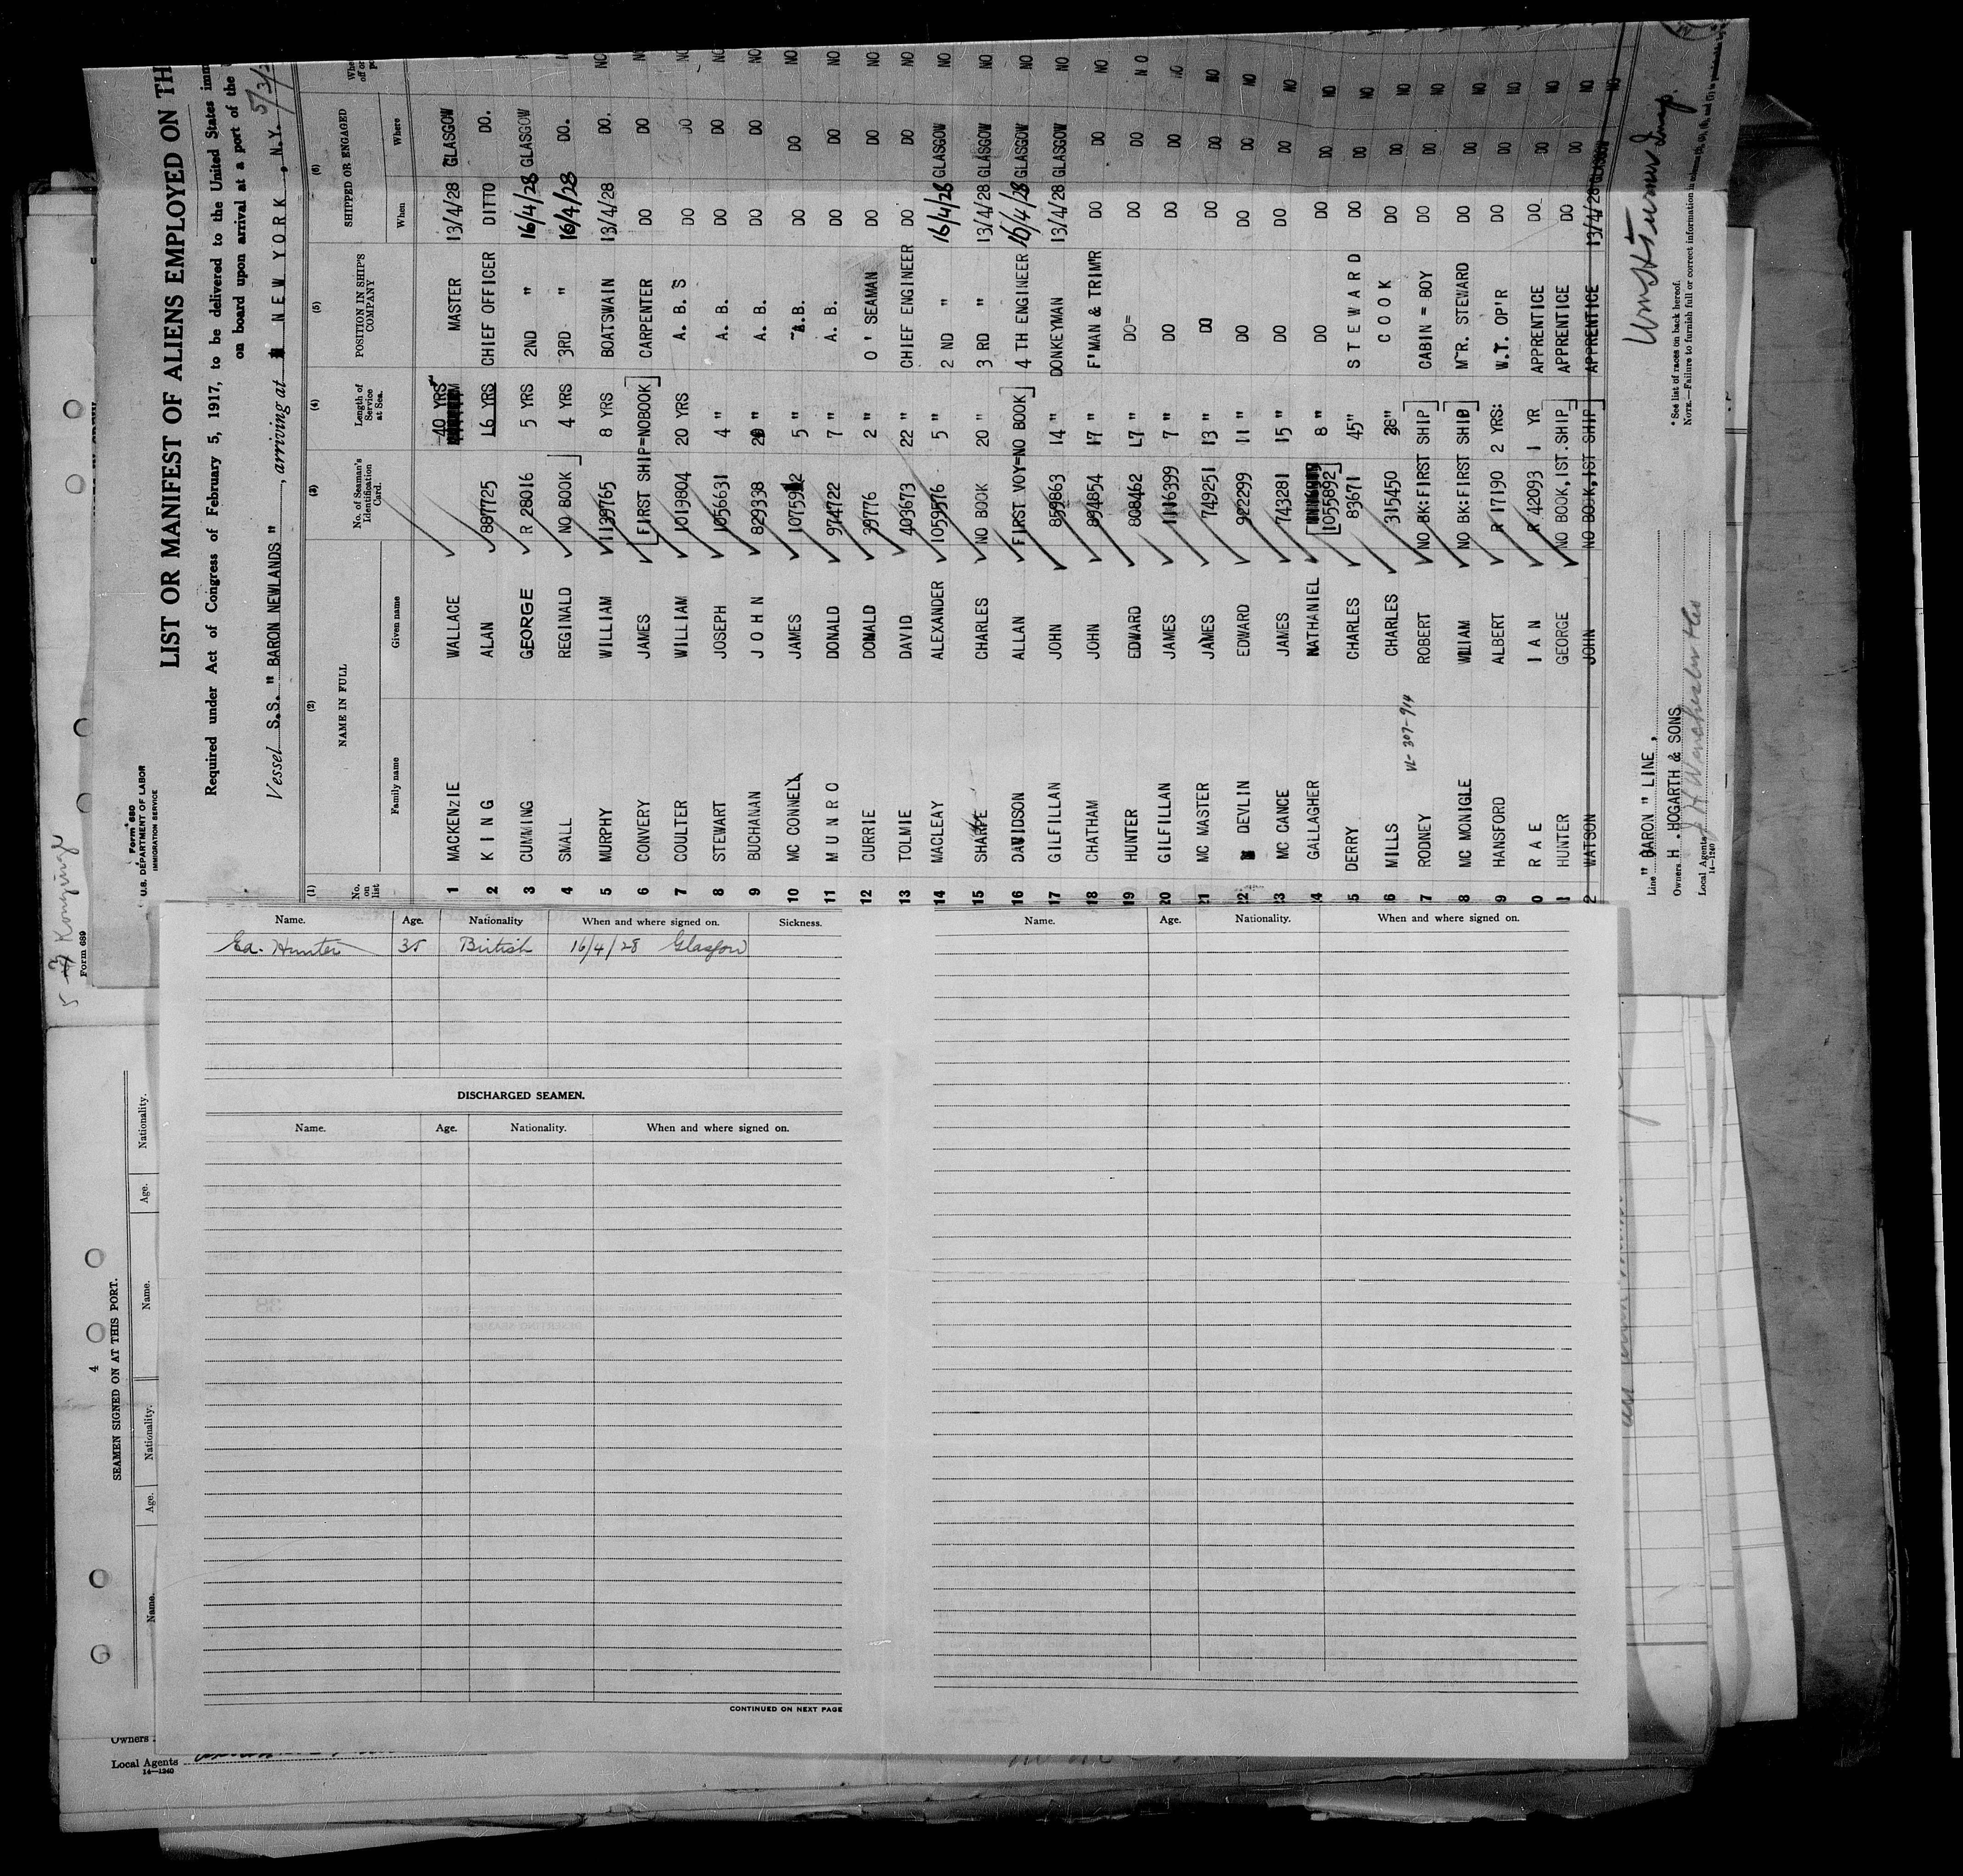 Form 680
U.S. DEPARTMENT OF LABOR
IMMIGRATION SERVICE
LIST OR MANIFEST OF ALIENS EMPLOYED ON TH
Required under Act of Congress of February 5, 1917, to be delivered to the United States imm
on board upon arrival at a port of the
Vessel S.S. " BARON NEWLANDS ", arriving at NEW YORK, N.Y. 5/3/2
(1) (2) (3) (4) (5) (6)
No. on list NAME IN FULL No. of Seaman's Identification Card. Length of Service at Sea. POSITION IN SHIP'S COMPANY SHIPPED OR ENGAGED
Family name Given name When Where
1 MACKENZIE WALLACE 40 YRS MASTER 13/4/28 GLASGOW
2 KING ALAN 887725 16 YRS CHIEF OFFICER DITTO DO.
3 CUMMING GEORGE R 28016 5 YRS 2ND " 16/4/28 GLASGOW
4 SMALL REGINALD NO BOOK 4 YRS 3RD " 16/4/28 DO.
5 MURPHY WILLIAM 1139765 8 YRS BOATSWAIN 13/4/28 DO. NO
6 CONVERY JAMES [FIRST SHIP=NOBOOK] CARPENTER DO DO NO
7 COULTER WILLIAM 1019804 20 YRS A. B. S DO DO NO
8 STEWART JOSEPH 1056631 4 " A. B. DO DO NO
9 BUCHANAN JOHN 829338 20 " A. B. DO DO NO
10 MC CONNELL JAMES 4 5 " A.B. DO DO NO
11 MUNRO DONALD 974722 7 " A. B. DO DO NO
12 CURRIE DONALD 397776 2 " O' SEAMAN DO DO NO
13 TOLMIE DAVID 403673 22 " CHIEF ENGINEER DO DO NO
14 MACLEAY ALEXANDER 1059576 5 " 2 ND " 16/4/28 GLASGOW NO
15 SHARPE CHARLES NO BOOK 20 " 3 RD " 13/4/28 GLASGOW NO
16 DAVIDSON ALLAN FIRST VOY=NO BOOK] 4 TH ENGINEER 16/4/28 GLASGOW NO
17 GILFILLAN JOHN 859863 14 " DONKEYMAN 13/4/28 GLASGOW NO
18 CHATHAM JOHN 894854 17 " F'MAN & TRIM'R DO DO NO
19 HUNTER EDWARD 808462 17 " DO= DO DO NO
20 GILFILLAN JAMES 1116399 7 " DO DO DO NO
21 MC MASTER JAMES 749251 13 " DO DO DO NO
22 DEVLIN EDWARD 922299 11 " DO DO DO NO
23 MC CANCE JAMES 743281 15 " DO DO DO NO
24 GALLAGHER NATHANIEL [1055892] 8 " DO DO DO NO
5 DERRY CHARLES 83671 45" STEWARD DO DO NO
6 MILLS CHARLES 315450 38" COOK DO DO NO
7 RODNEY ROBERT NO BK:FIRST SHIP] CABIN = BOY DO DO NO
8 MC MONIGLE WILLIAM NO BK:FIRST SHIP] M R. STEWARD DO DO NO
9 HANSFORD ALBERT R 17190 2 YRS: W.T. OP'R DO DO NO
0 RAE IAN R 42093 1 YR APPRENTICE DO DO NO
1 HUNTER GEORGE NO BOOK,1ST.SHIP] APPRENTICE DO DO NO
2 WATSON JOHN NO BOOK,1ST SHIP] APPRENTICE 13/4/28 GLASGOW NO
Line " BARON " LINE,
Owners H. HOGARTH & SONS
Local Agents
14-1240
*See list of races on back hereof.
NOTE.—Failure to furnish full or correct information
Form 689
4
SEAMEN SIGNED ON AT THIS PORT.
Name. Age. Nationality. Name. Age. Nationality.
Owners
Local Agents
14—1240
Name. Age. Nationality When and where signed on. Sickness.
Ed. Hunter 35 British 16/4/28 Glasgow
DISCHARGED SEAMEN.
Name. Age. Nationality. When and where signed on.
CONTINUED ON NEXT PAGE
Name. Age. Nationality. When and where signed on.